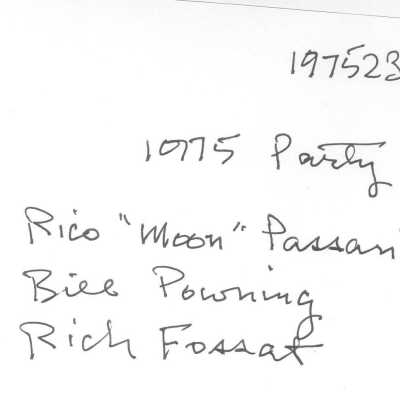 197523
1975 Party
Rico "Moon" Passan
Bill Powning
Rich Fossat